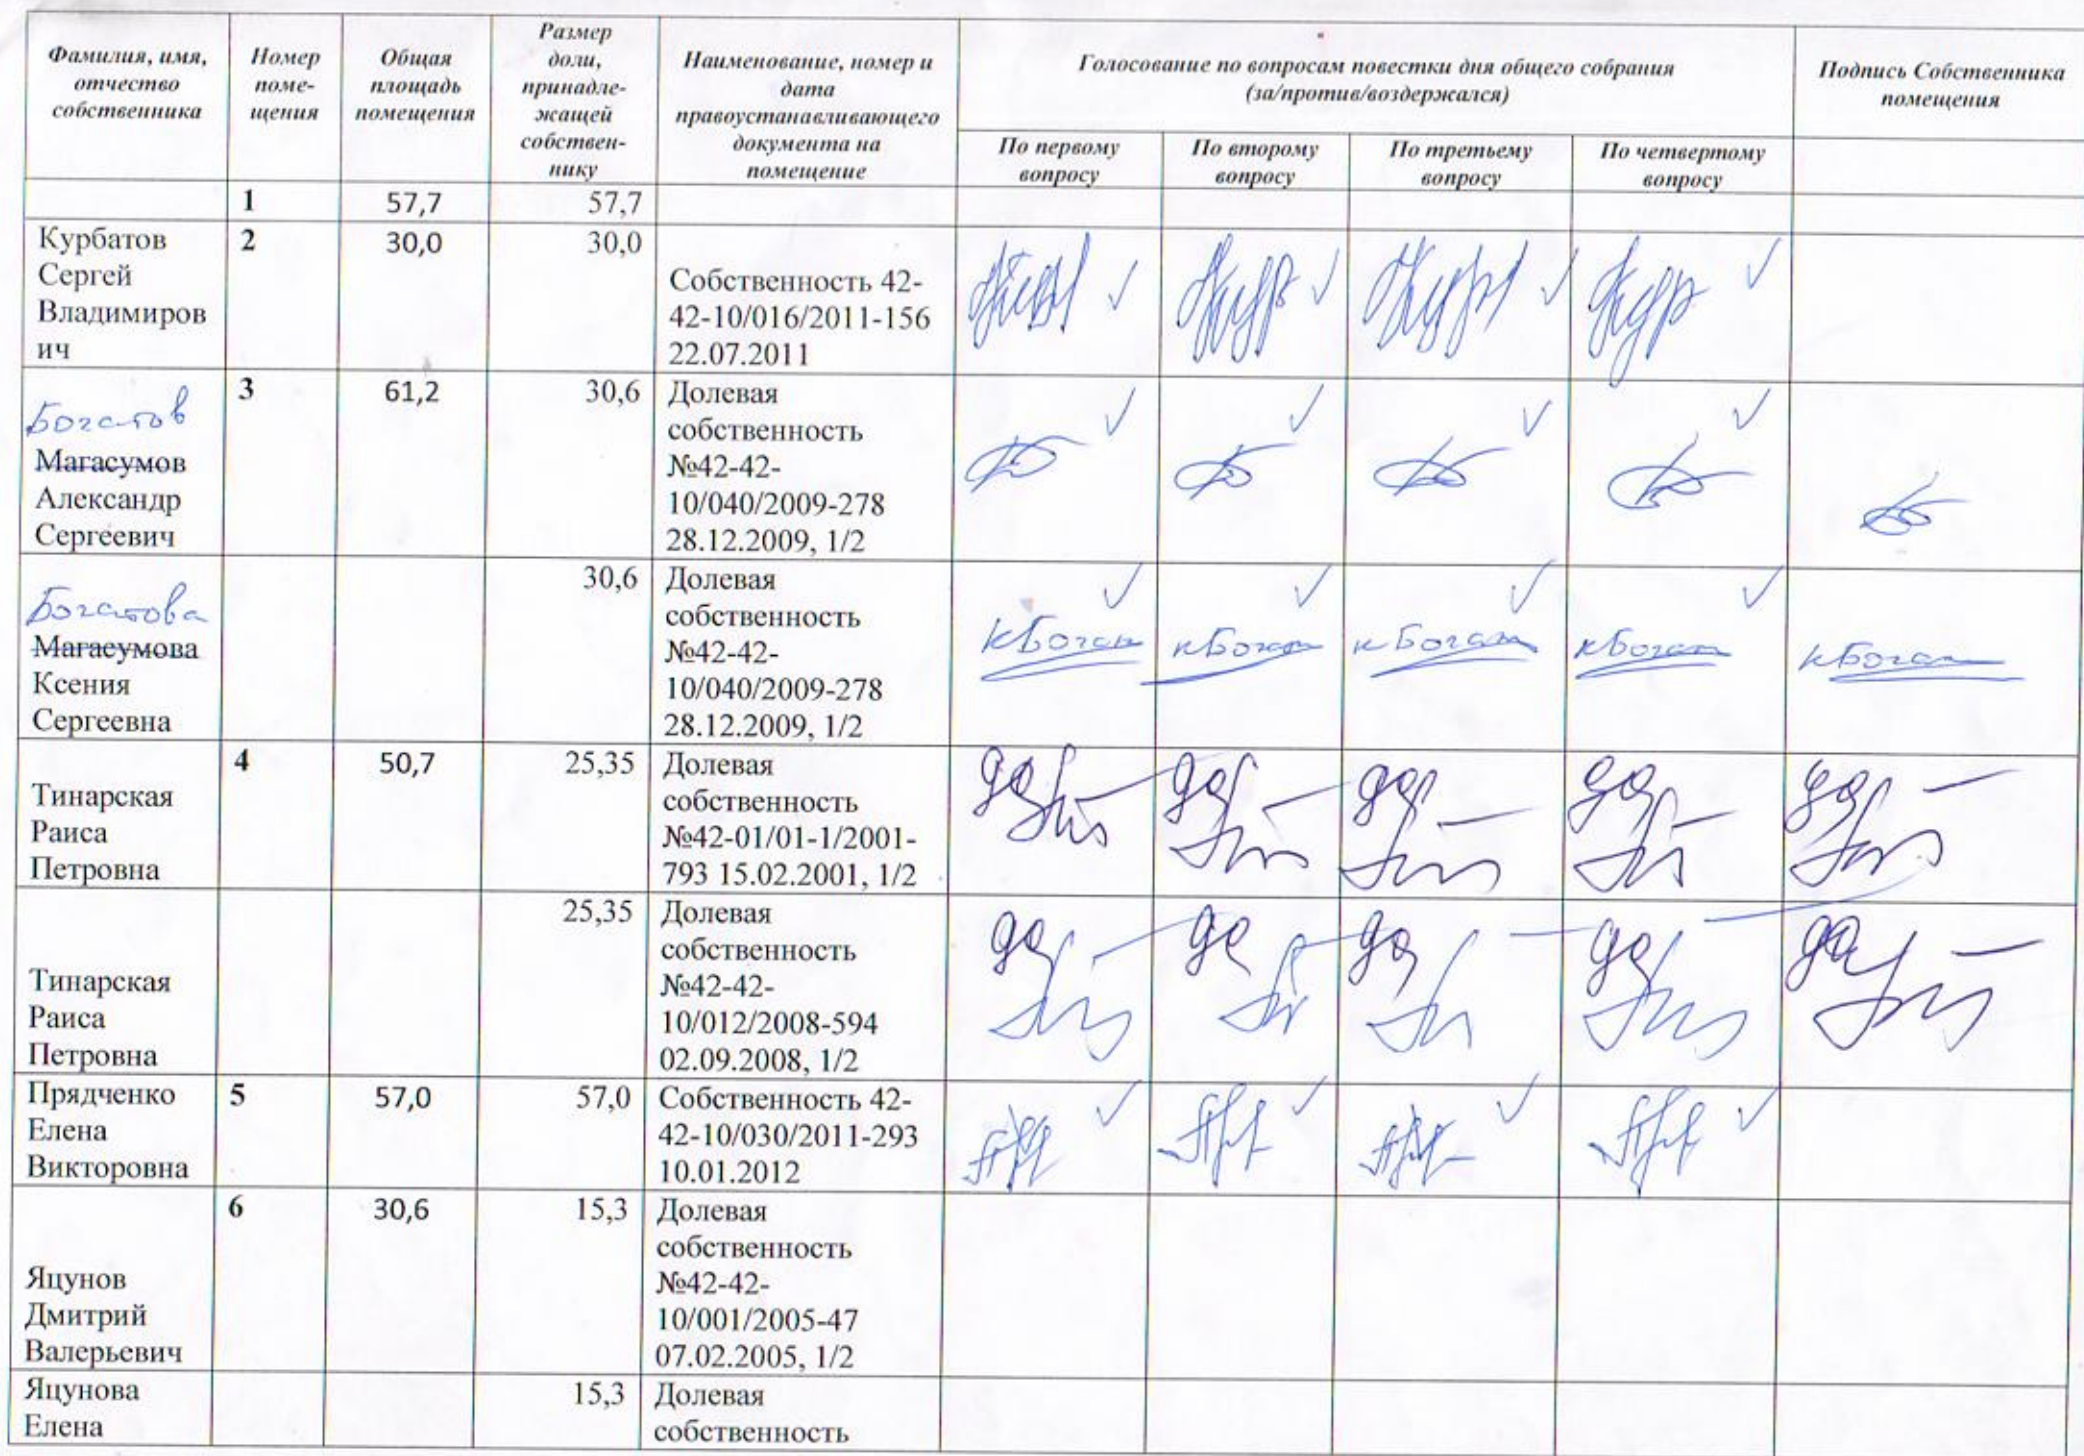 Фамилия, имя,
отчество
собственника
Номер
поме-
щения
Общая
площадь
помещения
Размер
доли,
принадле-
жащей
собствен-
нику
Наименование, номер и
дата
правоустанавливающего
документа на
помещение
Голосование по вопросам повестки дня общего собрания
(за/против/воздержался)
Подпись Собственника
помещения
По первому
вопросу
По второму
вопросу
По третьему
вопросу
По четвертому
вопросу
1
57,7
57,7
Курбатов
Сергей
Владимиров
ич
2
30,0
30,0
Собственность 42-
42-10/016/2011-156
22.07.2011
Богатов
Магасумов
Александр
Сергеевич
3
61,2
30,6
Долевая
собственность
№42-42-
10/040/2009-278
28.12.2009, 1/2
Богатова
Магасумова
Ксения
Сергеевна
30,6
Долевая
собственность
№42-42-
10/040/2009-278
28.12.2009, 1/2
Тинарская
Раиса
Петровна
4
50,7
25,35
Долевая
собственность
№42-01/01-1/2001-
793 15.02.2001, 1/2
да
да
да
да
да
Тинарская
Раиса
Петровна
25,35
Долевая
собственность
№42-42-
10/012/2008-594
02.09.2008, 1/2
да
да
да
да
да
Прядченко
Елена
Викторовна
5
57,0
57,0
Собственность 42-
42-10/030/2011-293
10.01.2012
Яцунов
Дмитрий
Валерьевич
6
30,6
15,3
Долевая
собственность
№42-42-
10/001/2005-47
07.02.2005, 1/2
Яцунова
Елена
15,3
Долевая
собственность